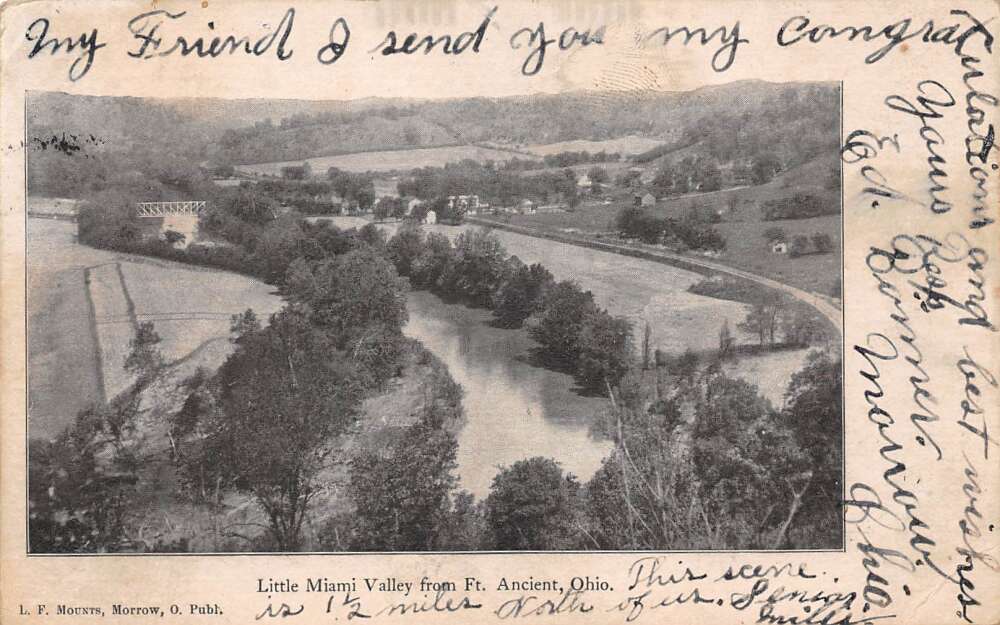 My Friend I send you my congrat
culations and best wishes
Yours Resp.
Ed. Bonner.
Morrow Ohio.
Little Miami Valley from Ft. Ancient, Ohio.
This scene
is 1½ miles North of us. Senior
Mills
L. F. Mounts, Morrow, O. Publ.